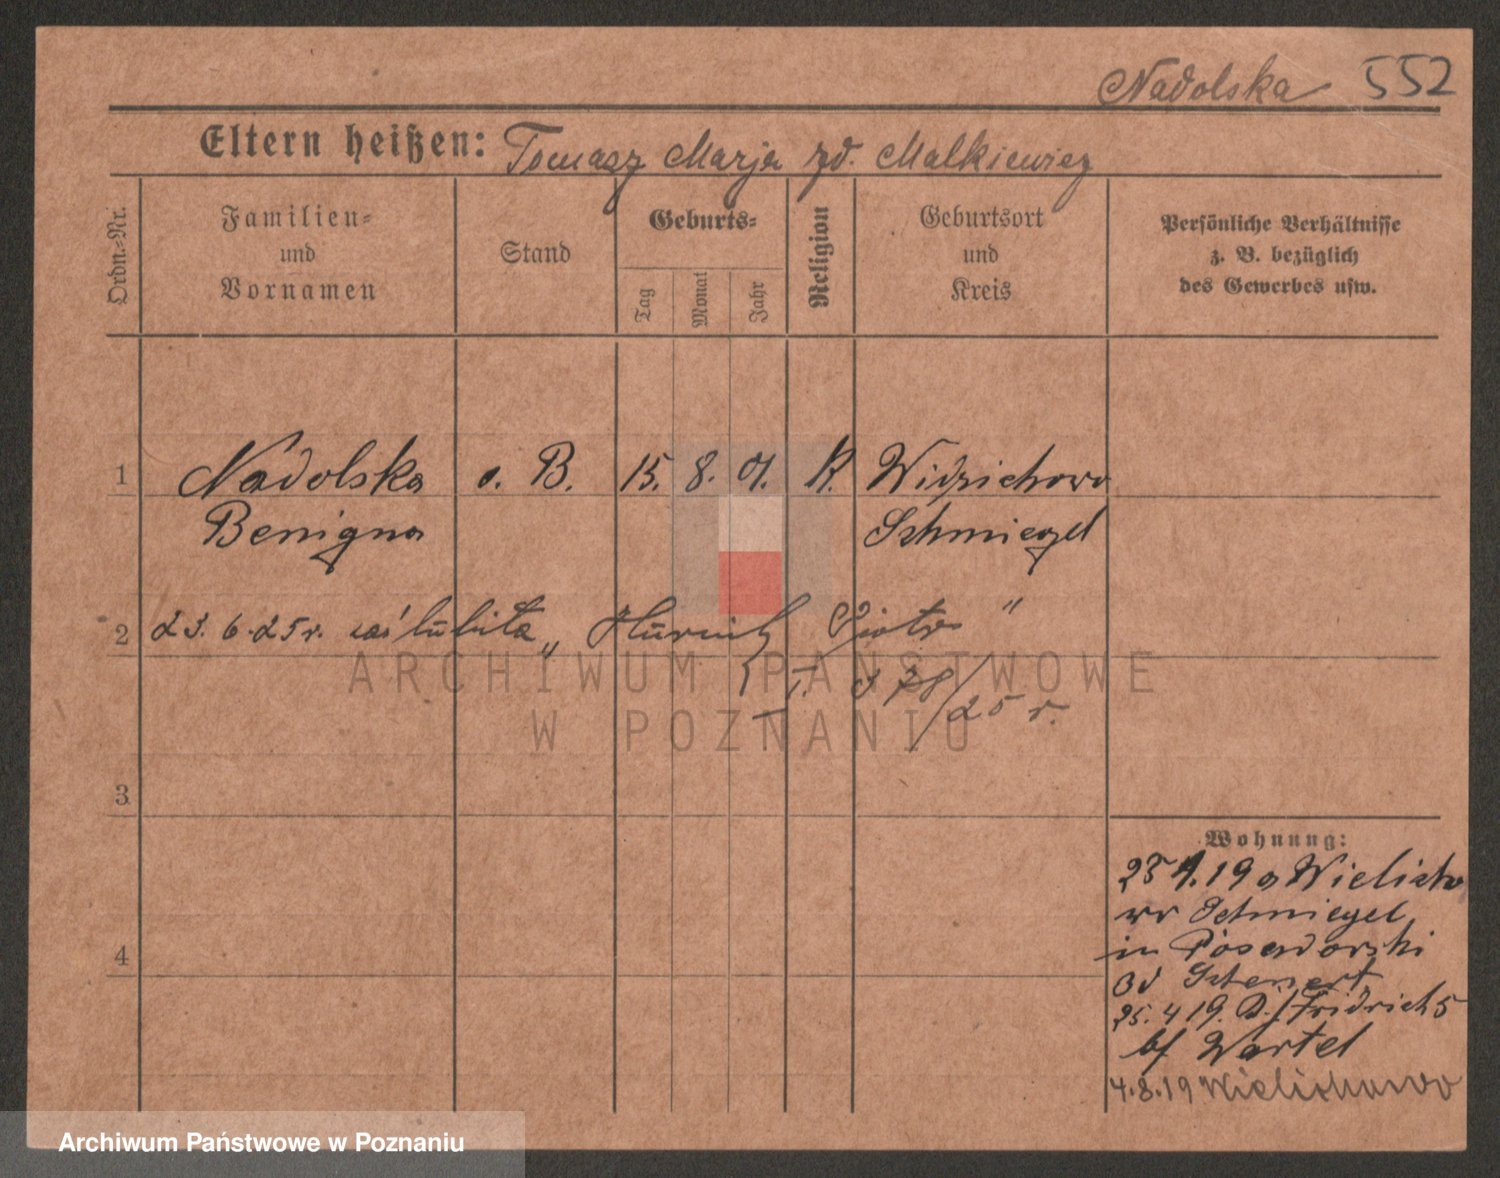 Nadolska 552
Eltern heißen: Tomasz Marja zd. Malkiewicz
Ordn.-Nr.
Familien-
und
Vornamen
Stand
Geburts-
Tag
Monat
Jahr
Religion
Geburtsort
und
Kreis
Persönliche Verhältnisse
z. B. bezüglich
des Gewerbes usw.
1 Nadolska o. B. 15. 8. 01. K. Widzichowo
Benigna Schmiegel
2 23. 6. 25 r. zaślubiła „ Piotr "
I. 378/25 r.
3
4
Wohnung:
25 4. 19 a Wielicho
wo Schmiegel
in
od
25. 4 19. D. f Fridrich 5
bf Wartel
4.8.19 Wielichowo
ARCHIWUM PAŃSTWOWE
W POZNANIU
Archiwum Państwowe w Poznaniu